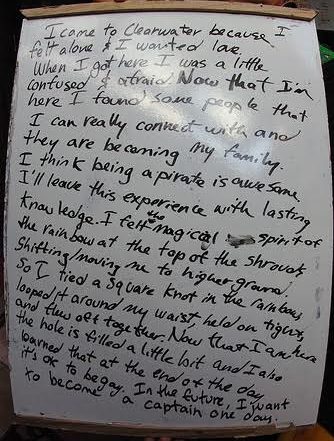 I came to Clearwater because I
felt alone & I wanted love.
When I got here I was a little
confused & afraid Now that I'm
here I found some people that
I can really connect with and
they are becoming my family.
I think being a pirate is awesome.
I'll leave this experience with lasting
knowledge. I felt the magical spirit of
the rainbow at the top of the shrouds
shifting/moving me to higher ground.
So I tied a square knot in the rainbow,
looped it around my waist, held on tight,
and flew off together. Now that I am here
the hole is filled a little bit and I also
learned that at the end of the day,
it's ok to be gay. In the future, I want
to become a captain one day.